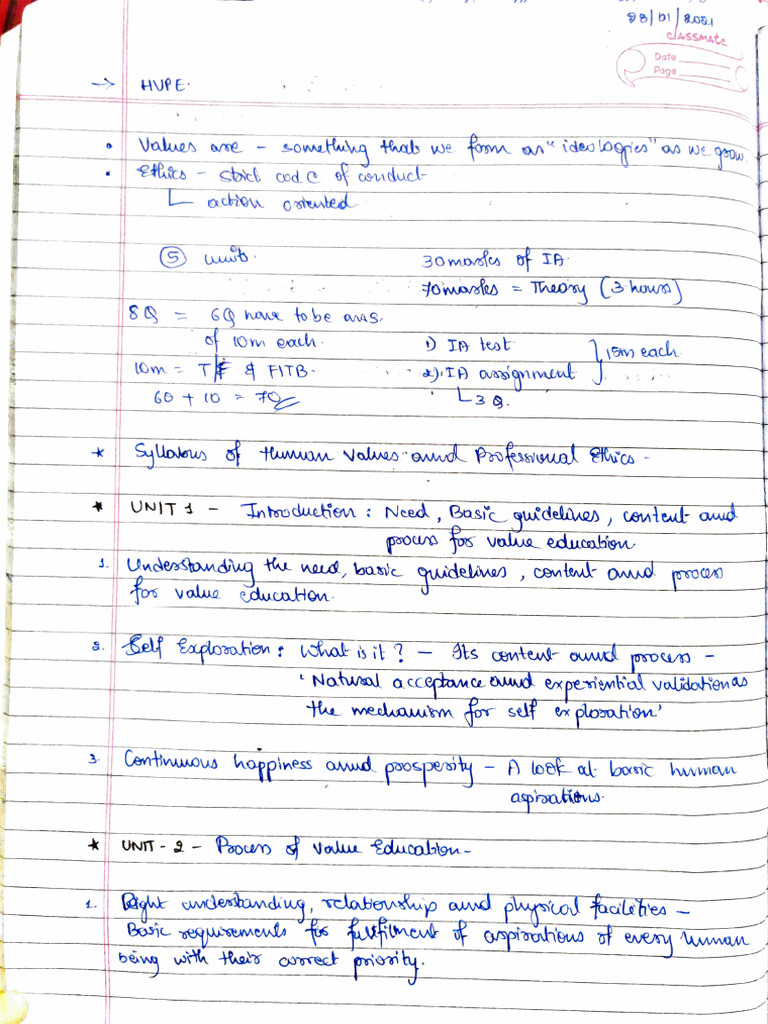 28/01/2021
CLASSMATE
Date
Page
→ HVPE.
• Values are - something that we form as "ideologies" as we grow
• Ethics - strict code of conduct
└ action oriented
⑤ units.
30 marks of IA.
70 marks = Theory (3 hours)
8Q = 6Q have to be ans.
of 10m each.
1) IA test
2) IA assignment
} 15m each.
└ 3 Q.
10m = T/F & FITB.
60 + 10 = 70
* Syllabus of Human Values and Professional Ethics -
* UNIT 1 - Introduction : Need, Basic guidelines, content and
process for value education
1. Understanding the need, basic guidelines, content and process
for value education.
2. Self Exploration : What is it ? - Its content and process -
'Natural acceptance and experiential validation as
the mechanism for self exploration.'
3. Continuous happiness and prosperity - A look at basic human
aspirations.
* UNIT - 2 - Process of Value Education -
1. Right understanding, relationship and physical facilities -
Basic requirements for fulfilment of aspirations of every human
being with their correct priority.